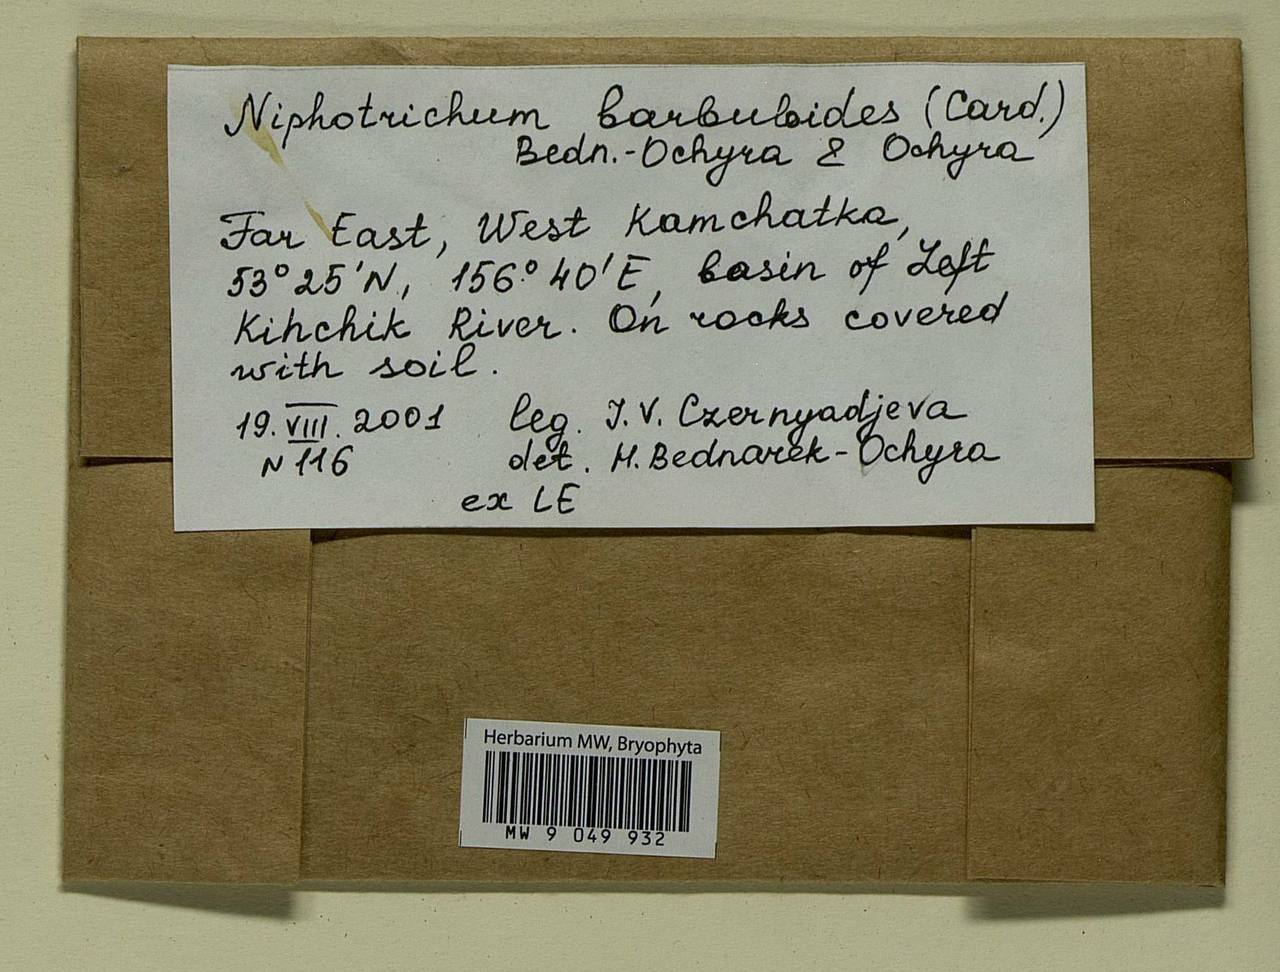 Niphotrichum barbuloides (Card.)
Bedn.-Ochyra & Ochyra
Far East, West Kamchatka,
53°25'N, 156°40'E, basin of Left
Kihchik River. On rocks covered
with soil.
19.VIII.2001 leg. I.V. Czernyadjeva
N 116 det. H. Bednarek-Ochyra
ex LE
Herbarium MW, Bryophyta
MW 9 049 932